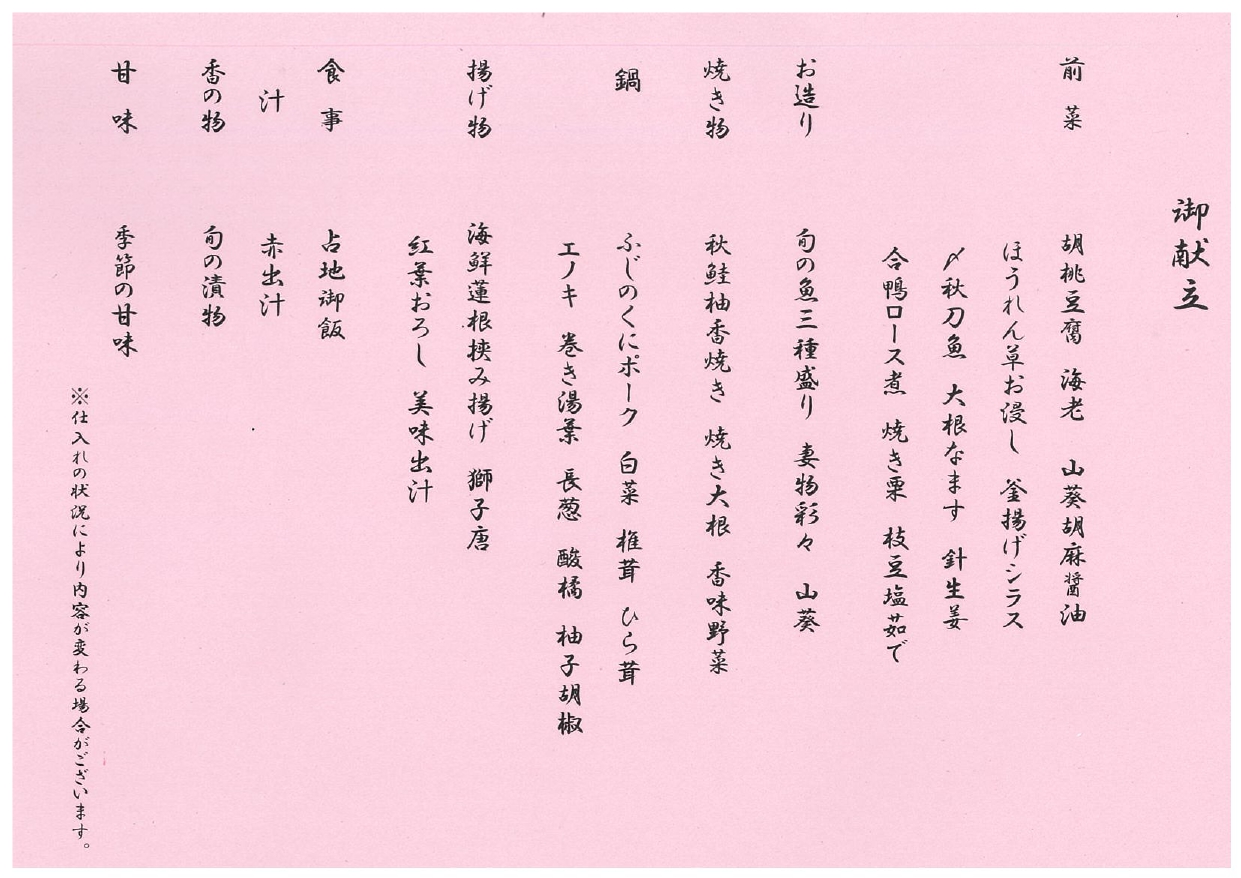 御献立
前菜　胡桃豆腐　海老　山葵胡麻醤油
ほうれん草お浸し　釜揚げシラス
〆秋刀魚　大根なます　針生姜
合鴨ロース煮　焼き栗　枝豆塩茹で
お造り　旬の魚三種盛り　妻物彩々　山葵
焼き物　秋鮭柚香焼き　焼き大根　香味野菜
鍋　ふじのくにポーク　白菜　椎茸　ひら茸
エノキ　巻き湯葉　長葱　酸橘　柚子胡椒
揚げ物　海鮮蓮根挟み揚げ　獅子唐
紅葉おろし　美味出汁
食事　占地御飯
汁　赤出汁
香の物　旬の漬物
甘味　季節の甘味
※仕入れの状況により内容が変わる場合がございます。